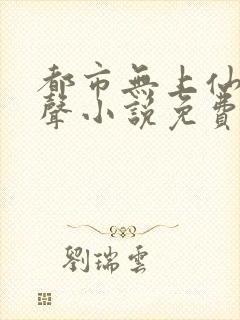 都市無上仙
聲小說免費
劉瑞雲